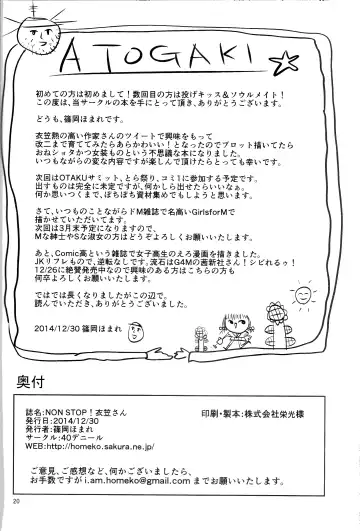 ATOGAKI
初めての方は初めまして！数回目の方は投げキッス＆ソウルメイト！
この度は、当サークルの本を手にとって頂き、ありがとうございます。
どうも、篠岡ほまれです。
衣笠熱の高い作家さんのツイートで興味をもって
改二まで育ててみたらあらかわいい！となったのでプロット描いてたら
おねショタかつ女装ものという不思議な本になりました。
いつもながらの変な内容ですが楽しんで頂けたらとっても幸いです。
次回はOTAKUサミット、とら祭り、コミ1に参加する予定です。
出すものは完全に未定ですが、何かしら出せたらいいなぁ。
何か思いつくまで、ぼちぼち資材集めでもしようと思います。
さて、いつものことながらドM雑誌で名高いGirlsforMで
描かせていただいてます。
次回は3月末予定になりますので、
Mな紳士やSな淑女の方はどうぞよろしくお願いいたします。
あと、Comic高という雑誌で女子高生のえろ漫画を描きました。
JKリフレもので、逆転なしです。流石はG4Mの茜新社さん！シビれるぅ！
12/26に絶賛発売中なので興味のある方はこちらの方も
何卒よろしくお願いいたします。
ではでは長くなりましたがこの辺で。
読んでいただき、ありがとうございました。
2014/12/30 篠岡ほまれ
奥付
誌名：NON STOP！衣笠さん
発行日：2014/12/30
発行者：篠岡ほまれ
サークル：40デニール
WEB:http://homeko.sakura.ne.jp/
印刷・製本：株式会社栄光様
ご意見、ご感想など、何かございましたら、
お手数ですが i.am.homeko@gmail.com までお願いいたします。
20